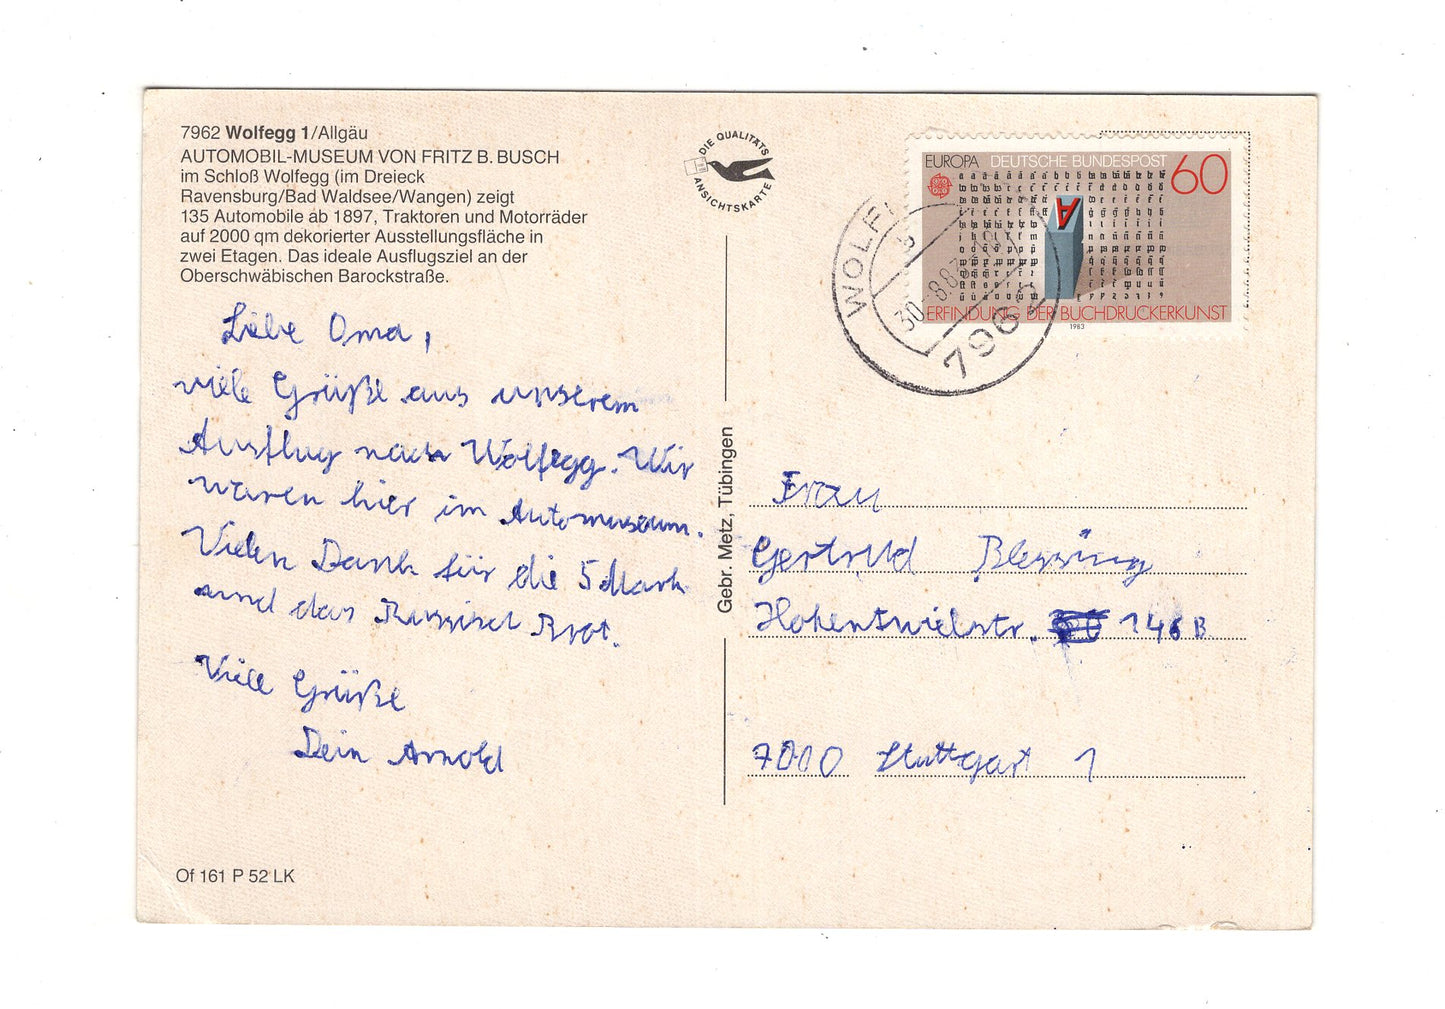 7962 Wolfegg 1/Allgäu
AUTOMOBIL-MUSEUM VON FRITZ B. BUSCH
im Schloß Wolfegg (im Dreieck
Ravensburg/Bad Waldsee/Wangen) zeigt
135 Automobile ab 1897, Traktoren und Motorräder
auf 2000 qm dekorierter Ausstellungsfläche in
zwei Etagen. Das ideale Ausflugsziel an der
Oberschwäbischen Barockstraße.
Liebe Oma,
viele Grüße aus unserem
Ausflug nach Wolfegg. Wir
waren hier im Automuseum.
Vielen Dank für die 5 Mark
und das Russisch Brot.
Viele Grüße
Dein Arnold
Of 161 P 52 LK
DIE QUALITÄTS
ANSICHTSKARTE
Gebr. Metz, Tübingen
EUROPA DEUTSCHE BUNDESPOST 60
A
ERFINDUNG DER BUCHDRUCKERKUNST
1983
WOLF
30.-8.83
796
Frau
Gertrud Blessing
Hohentwielstr. 146 B
7000 Stuttgart 1